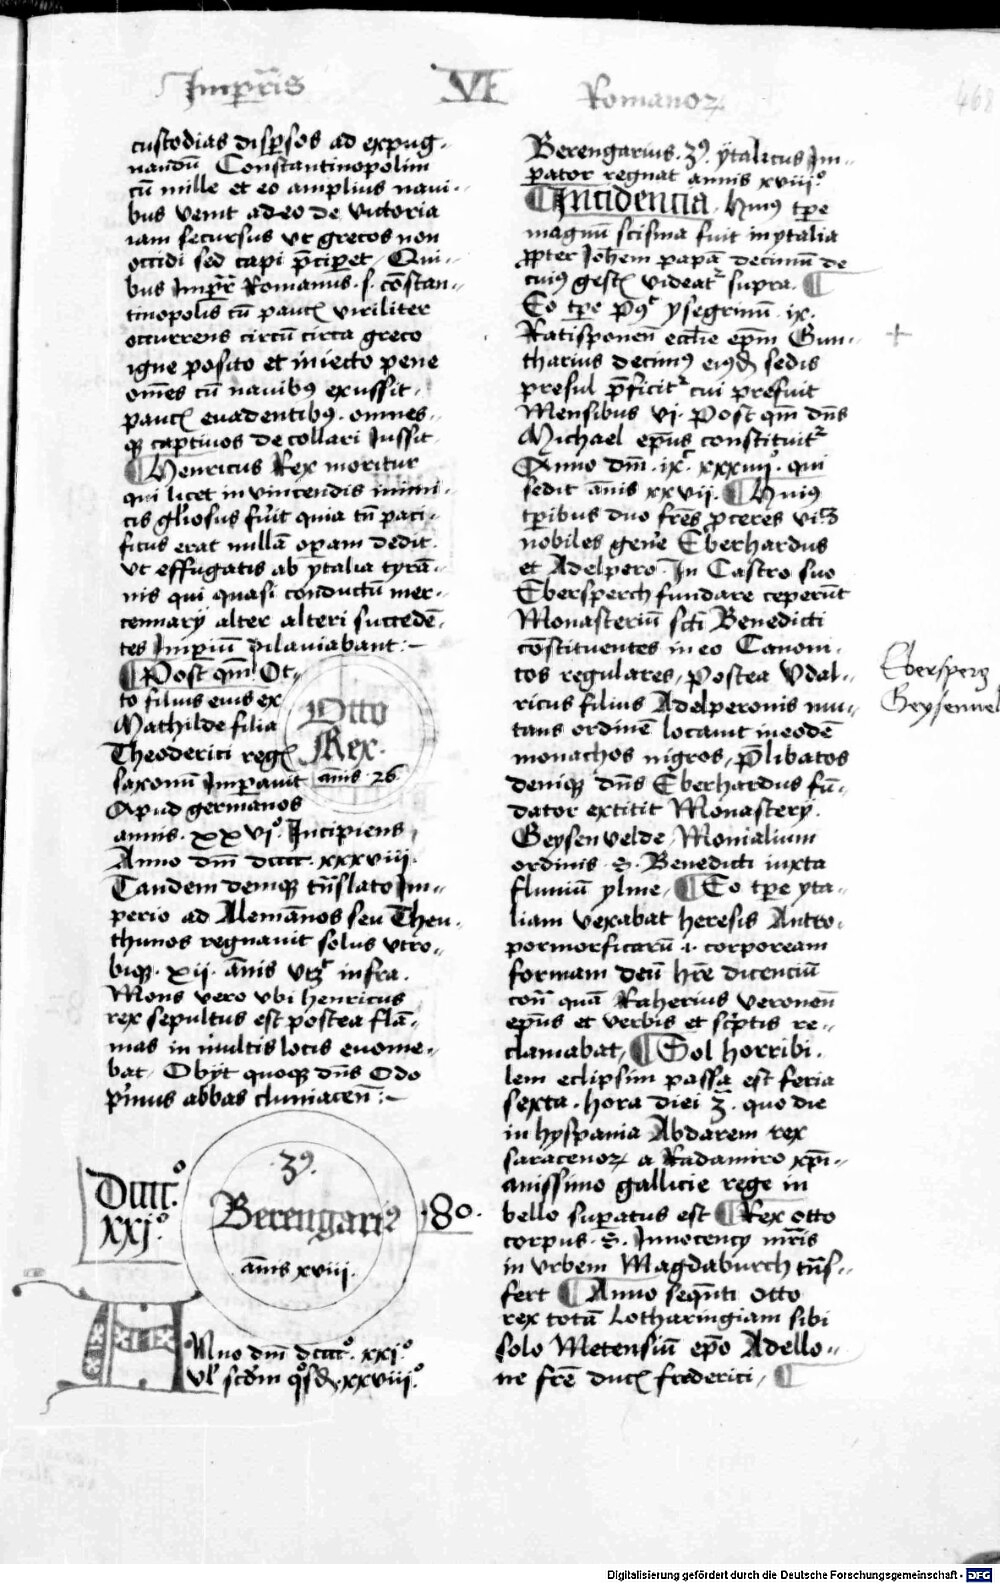 Imperris VI Romanoꝝ
468
custodias dispersos ad expug-
nandū Constantinopolim
cū mille et eo amplius navi-
bus venit adeo de victoria
iam securus vt grecos non
occidi sed capi p̄ciperet / Qui-
bus Imper̄ Romanus .s. cōstan-
tinopolis cū pauc̄ viriliter
occurrens circū circa greco
igne posito et iniecto pene
om̄es cū navibꝰ exussit.
pauc̄ evadentibꝰ. omnes-
qꝫ captivos decollari Iussit
¶ Henricus Rex moritur
qui licet in vincendis inimi-
cis gl̄iosus fuit quia tn̄ paci-
ficus erat nullā operam dedit
vt effugatis ab ytalia tyrā-
nis qui quasi conductū mer-
cennarÿ alter alteri succedē-
tes Imperiū dilaniabant :-
¶ Post qm̄ Ot-
to filius eius ex
Mathilde filia
Theoderici reḡ
saxonū Imperavit
Apud germanos
annis . xxvi°. Incipiens
Anno dm̄ dcccc. xxxviii.
Otto
Rex.
annis 26
Tandem demqꝫ tn̄slato Im-
perio ad Alemānos seu Theu-
thunos regnavit solus vtro-
biqꝫ . xij . ānis vt infra.
Mons vero vbi henricus
rex sepultus est postea flā-
mas in multis locis euome-
bat / Obÿt quoqꝫ dn̄s Odo
p̄mus abbas cluniacen̄ :-
Dcccc.°
xxj.°
.3ꝰ.
Berengariꝰ
ānis xviij.
.80.
Anno dm̄ dcccc°. xxj.°
Vl̄ scdm̄ qsd̄. xxviij.°
Berengarius .3ꝰ. ÿtalicus Im-
perator regnat annis xviij.°
¶ Incidencia. Huiꝰ tpe
magnū scisma fuit in ytalia
ꝓpter Joh̄em papā decimū de
cuiꝰ gest̄ videat̄ supra. ¶
Eo tpe p̄ꝰ ysegrinū . ix.
Ratisponen̄ eccl̄ie ep̄m Gun-
tharius decimꝰ eiꝰd̄ sedis
presul p̄ficit̄ cui prefuit
Mensibus vj. Post qm̄ dn̄s
Michael ep̄us constituit̄
Anno dm̄. ixᶜ. xxxiiij°. qui
sedit ānis xxvij. ¶ Huiꝰ
tpribus duo fr̄es p̄ceres vi3
nobiles gen̄e Eberhardus
et Adelpero. In Castro suo
Ebersperch fundare ceperūt
Monasteriū sct̄i Benedicti
cōstituentes in eo Canoni-
cos regulares, Postea Vdal-
ricus filius Adelperonis mu-
tans ordinē locavit in eodē
monachos nigros, p̄libatos
deniqꝫ dn̄s Eberhardus fū-
dator extitit Monasterÿ
Geysenvelde / Monialium
ordinis . S. Benedicti iuxta
fluviū ylme, ¶ Eo tpe yta-
liam vexabat heresis Antro-
pormorficarū .i. corpoream
formam deū h̄re dicenciū
con̄ quā Raherius veronen̄
ep̄us et verbis et sc̄ptis re-
clamabat, ¶ Sol horribi-
lem eclipsim passa est feria
sexta . hora diei 3ᵃ . quo die
in hyspania Abdarem rex
saracenoꝝ a Radamiro xp̄i-
anissimo gallicie rege in
bello superatus est ¶ Rex Otto
corpus . S. Innocencÿ mr̄is
in vrbem Magdaburch tn̄s-
fert ¶ Anno seqn̄ti Otto
rex totā Lotharingiam sibi
solo Metensiū ep̄o Adello-
ne fr̄e duc̄ frederici, ¶
+
Ebersperg
Geysenvel
Digitalisierung gefördert durch die Deutsche Forschungsgemeinschaft - DFG